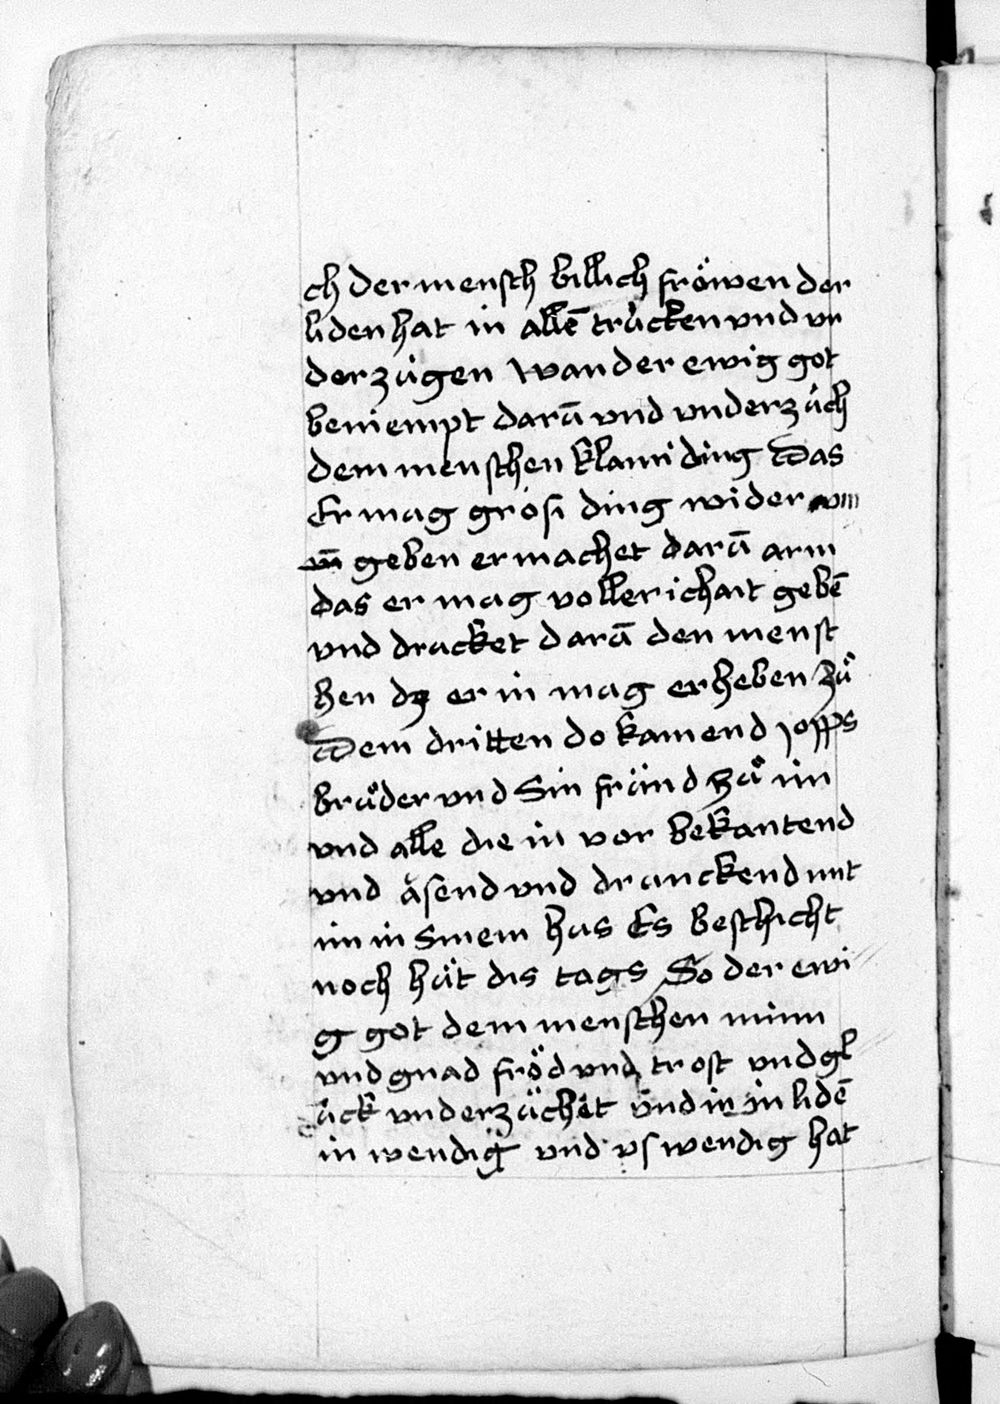 ch der mensch billich fröwen der
liden hat in allē trůcken vnd vn
der zúgen wan der ewig got
beniempt darū vnd vnderzúch
dem menschen klaini ding Das
Er mag grósi ding wider
geben er machet darū arm
das er mag voller ichait gebē
vnd drucket darū den mensc
hen dz er in mag erheben zů
Dem dritten do kamend jopps
brůder vnd Sin fründ zů im
vnd alle die in vor bekantend
vnd ásend vnd dranckend mit
im in Sinem hus Es beschicht
noch hút dis tags So der ewi
g got dem menschen minn
vnd gnad fröd vnd trost vnd gl
úck vnderzúchet vnd in in lidē
in wendig vnd vswendig hat